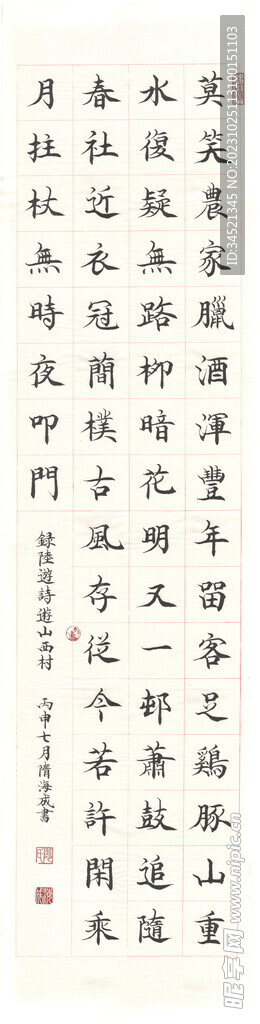 莫笑農家臘酒渾豐年留客足鷄豚山重
水復疑無路柳暗花明又一邨蕭鼓追隨
春社近衣冠簡樸古風存從今若許閑乘
月拄杖無時夜叩門
録陸遊詩遊山西村 丙申七月隋海成書
ID:34521345 NO:20231025113100151103
昵图网 www.nipic.cn